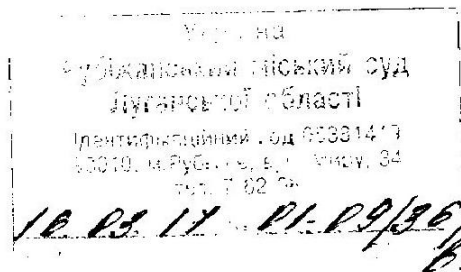 Україна
Рубіжанський міський суд
Луганської області
Ідентифікаційний код
93010, м.Рубіжне, вул. Миру, 34
тел.
10 03 17 01-09/36/